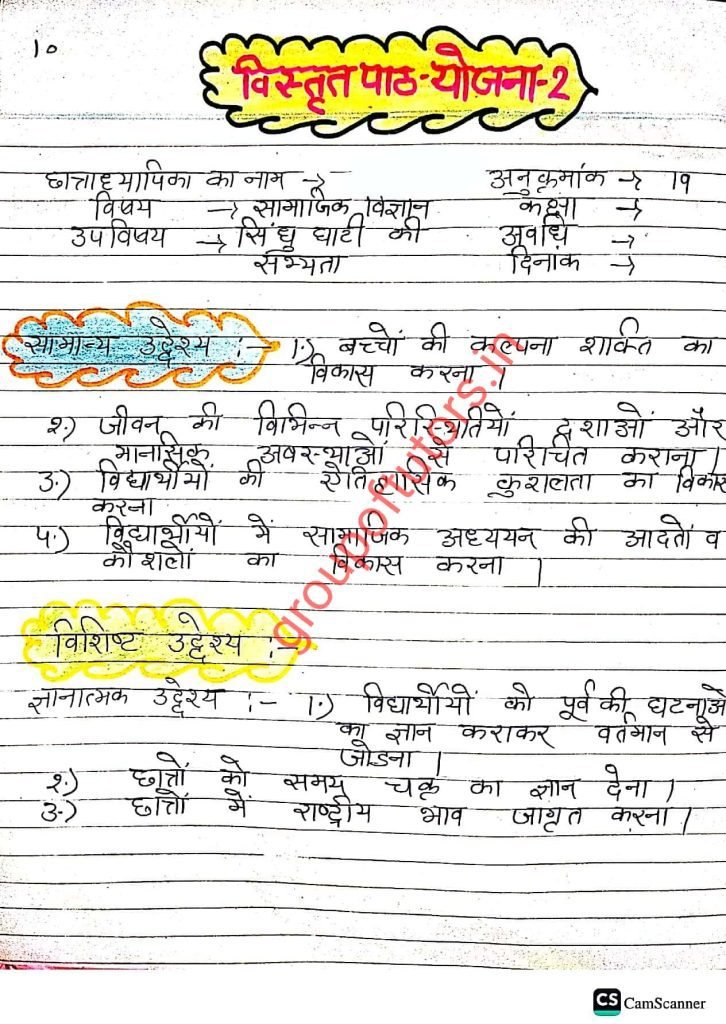 १०
विस्तृत पाठ-योजना-2
छात्राध्यापिका का नाम → अनुक्रमांक → 19
विषय → सामाजिक विज्ञान कक्षा →
उपविषय → सिंधु घाटी की अवधि →
सभ्यता दिनांक →
सामान्य उद्देश्य :- 1.) बच्चों की कल्पना शक्ति का
विकास करना।
२.) जीवन की विभिन्न परिस्थितियों दशाओं और
मानसिक अवस्थाओं से परिचित कराना।
3.) विद्यार्थीयों की ऐतिहासिक कुशलता का विकास
करना
५.) विद्यार्थीयों में सामाजिक अध्ययन की आदतों व
कौशलों का विकास करना।
विशिष्ट उद्देश्य :
ज्ञानात्मक उद्देश्य :- 1.) विद्यार्थीयों को पूर्व की घटनाओं
का ज्ञान कराकर वर्तमान से
जोडना।
२.) छात्रों को समय चक्र का ज्ञान देना।
3.) छात्रों में राष्ट्रीय भाव जागृत करना।
groupoftutors.in
CS CamScanner